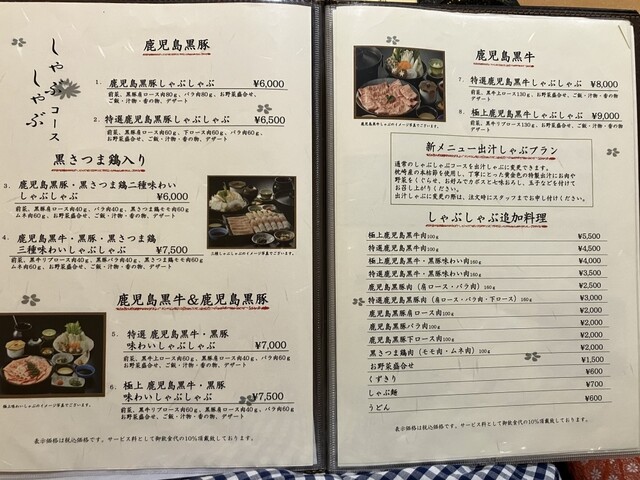 しゃぶしゃぶコース
鹿児島黒豚
1. 鹿児島黒豚しゃぶしゃぶ ¥6,000
前菜、黒豚肩ロース肉80g、バラ肉80g、お野菜盛合せ、
ご飯・汁物・香の物、デザート
2. 特選鹿児島黒豚しゃぶしゃぶ ¥6,500
前菜、黒豚肩ロース肉60g、下ロース肉60g、バラ肉60g、
お野菜盛合せ、ご飯・汁物・香の物、デザート
黒さつま鶏入り
3. 鹿児島黒豚・黒さつま鶏二種味わい
しゃぶしゃぶ ¥6,000
前菜、黒豚肩ロース肉40g、バラ肉40g、黒さつま鶏モモ肉40g
ムネ肉40g、お野菜盛合せ、ご飯・汁物・香の物、デザート
4. 鹿児島黒牛・黒豚・黒さつま鶏
三種味わいしゃぶしゃぶ ¥7,500
前菜、黒牛リブロース肉40g、黒豚バラ肉40g、黒さつま鶏モモ肉60g
ムネ肉60g、お野菜盛合せ、ご飯・汁物・香の物、デザート
三種しゃぶしゃぶのイメージ写真でございます。
鹿児島黒牛&鹿児島黒豚
5. 特選 鹿児島黒牛・黒豚
味わいしゃぶしゃぶ ¥7,000
前菜、黒牛上ロース肉60g、黒豚肩ロース肉40g、バラ肉60g
お野菜盛合せ、ご飯・汁物・香の物、デザート
6. 極上 鹿児島黒牛・黒豚
味わいしゃぶしゃぶ ¥7,500
前菜、黒牛リブロース肉60g、黒豚肩ロース肉40g、バラ肉60g
お野菜盛合せ、ご飯・汁物・香の物、デザート
極上味わいしゃぶしゃぶのイメージ写真でございます。
表示価格は税込価格です。サービス料として御飲食代の10%頂戴致しております。
鹿児島黒牛
7. 特選鹿児島黒牛しゃぶしゃぶ ¥8,000
前菜、黒牛上ロース肉130g、お野菜盛合せ、
ご飯・汁物・香の物、デザート
8. 極上鹿児島黒牛しゃぶしゃぶ ¥9,000
前菜、黒牛リブロース肉130g、お野菜盛合せ、
ご飯・汁物・香の物、デザート
鹿児島黒牛しゃぶしゃぶのイメージ写真でございます。
新メニュー出汁しゃぶプラン
通常のしゃぶしゃぶコースを出汁に変更できます。
枕崎産の本枯節を使用し、丁寧にとった黄金色の特製出汁にお肉や
野菜をくぐらせ、お好みでカボスと七味おろし、玉子などを付けて
お召し上がりください。
出汁しゃぶに変更の際は、注文時にスタッフまでお申し付けください。
しゃぶしゃぶ追加料理
極上鹿児島黒牛肉100g ¥5,500
特選鹿児島黒牛肉100g ¥4,500
極上鹿児島黒牛・黒豚味わい肉160g ¥4,000
特選鹿児島黒牛・黒豚味わい肉160g ¥3,500
鹿児島黒豚肉(肩ロース・バラ肉)160g ¥2,500
特選鹿児島黒豚肉(肩ロース・バラ肉・下ロース)180g ¥3,000
鹿児島黒豚肩ロース肉100g ¥2,000
鹿児島黒豚バラ肉100g ¥2,000
鹿児島黒豚下ロース肉100g ¥2,000
黒さつま鶏肉(モモ肉・ムネ肉)100g ¥2,000
お野菜盛合せ ¥1,500
くずきり ¥600
しゃぶ麺 ¥700
うどん ¥600
表示価格は税込価格です。サービス料として御飲食代の10%頂戴致しております。